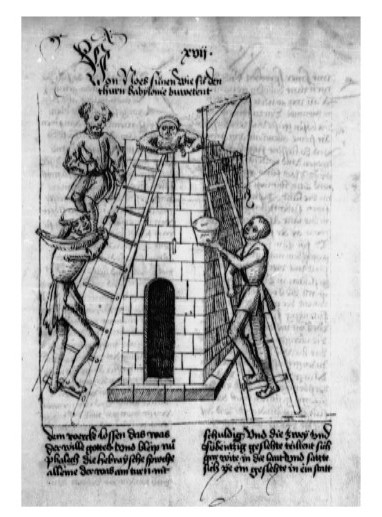 xvij.
Von Noes sünen wie sü den
thurn babylonie buwetent
dem wercke lossen das was
der wille gottes vnd bleip
die hebraÿsche sproche
alleine der was am turn nit
schuldig Vnd die zweÿ vnd
sübentzig geslehte teiltent sich
gar wite in die lant vnd satte
sich ÿe ein geslehte in ein statt